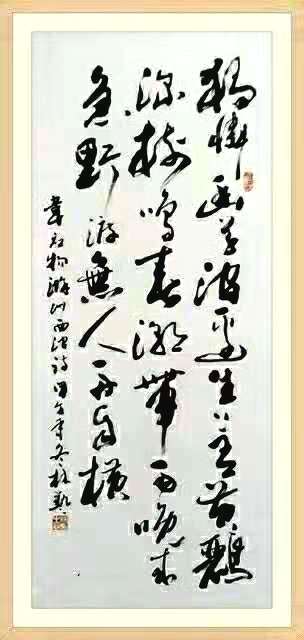 獨憐幽草澗邊生上有黃鸝
深樹鳴春潮帶雨晚来
急野渡無人舟自横
韋应物滁州西澗詩甲午年冬